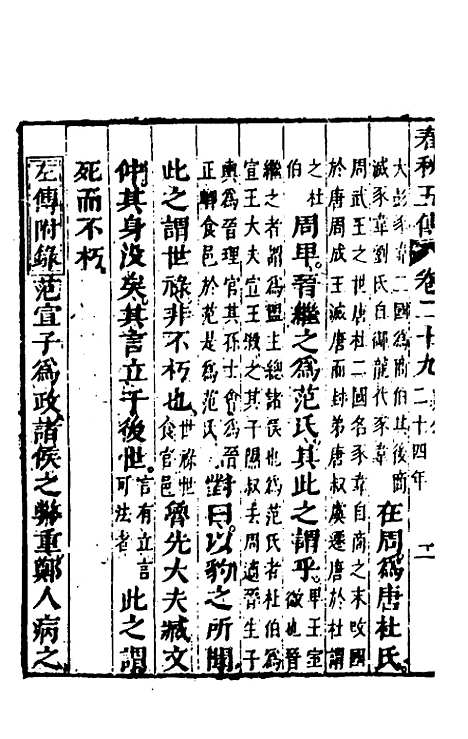 春秋五傳 卷二十九 二十四年 二
大彭豕韋二國爲商伯其後商
滅豕韋劉氏自御龍代豕韋
在周爲唐杜氏
周武王之世唐杜二國名豕韋自商之末改國
於唐周成王滅唐而封弟唐叔虞遷唐於杜謂
之杜
伯
周卑晉繼之爲范氏其此之謂乎
卑王室
微也晉
繼之者謂爲盟主總諸侯也爲范氏者杜伯爲
宣王大夫宣王殺之其子隰叔去周適晉生子
輿爲晉理官其孫士會爲晉
正縣食邑於范是爲范氏
對曰以豹之所聞
此之謂世祿非不朽也
世祿世
食官邑
魯先大夫臧文
仲其身没矣其言立于後世
言有立言
可法者
此之謂
死而不朽
左傳附錄范宣子爲政諸侯之幣重鄭人病之